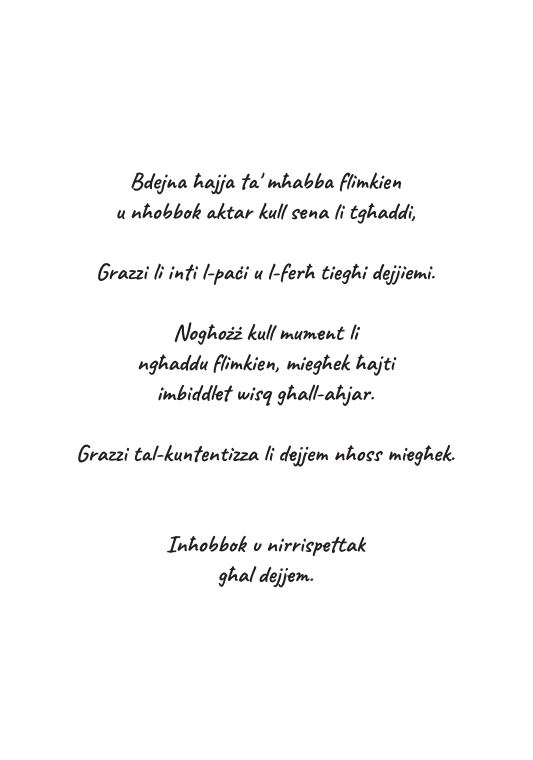 Bdejna ħajja ta' mħabba flimkien
u nħobbok aktar kull sena li tgħaddi,
Grazzi li inti l-paċi u l-ferħ tiegħi dejjiemi.
Nogħożż kull mument li
ngħaddu flimkien, miegħek ħajti
imbiddlet wisq għall-aħjar.
Grazzi tal-kuntentizza li dejjem nħoss miegħek.
Inħobbok u nirrispettak
għal dejjem.